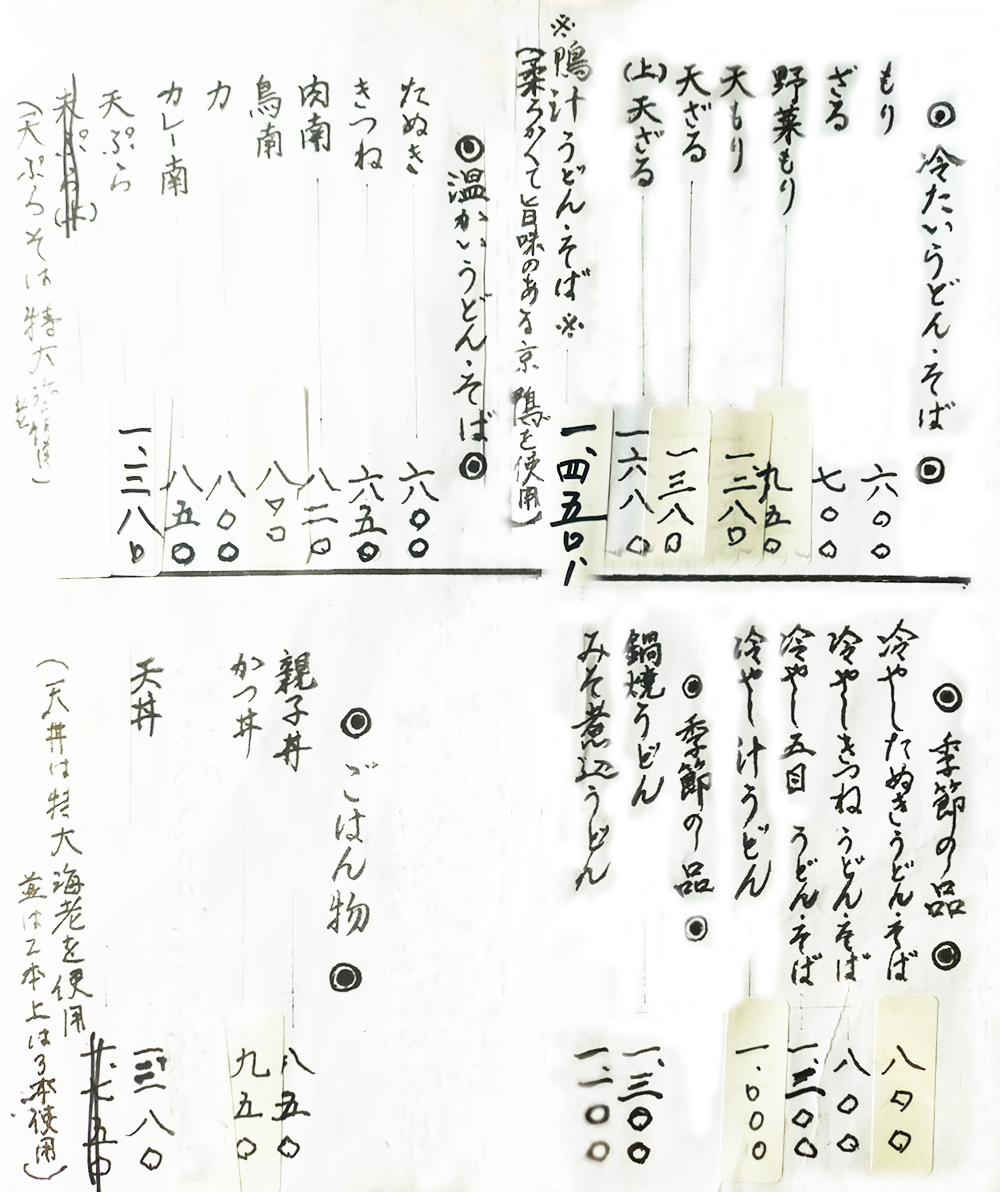 ◎ 冷たいうどん・そば ◎
もり 六〇〇
ざる 七〇〇
野菜もり 九五〇
天もり 一三八〇
天ざる 一三八〇
(上)天ざる 一六八〇
※鴨汁うどん・そば※ 一、四五〇、
(柔らかくて旨味のある京鴨を使用)
◎ 温かいうどん・そば ◎
たぬき 六〇〇
きつね 六五〇
肉南 八二〇
鳥南 八〇〇
力 八〇〇
カレー南 八五〇
天ぷら 一、三八〇
(天ぷらそば 特大
◎ 季節の品 ◎
冷やしたぬきうどん・そば 八〇〇
冷やしきつねうどん・そば 八〇〇
冷やし五目うどん・そば 一、三〇〇
冷やし汁うどん 一、〇〇〇
◎ 季節の品 ◎
鍋焼うどん 一、三〇〇
みそ煮込うどん 一、二〇〇
◎ ごはん物 ◎
親子丼 八五〇
かつ丼 九五〇
天丼 一三八〇
(天丼は特大海老を使用
並は2本上は3本使用)